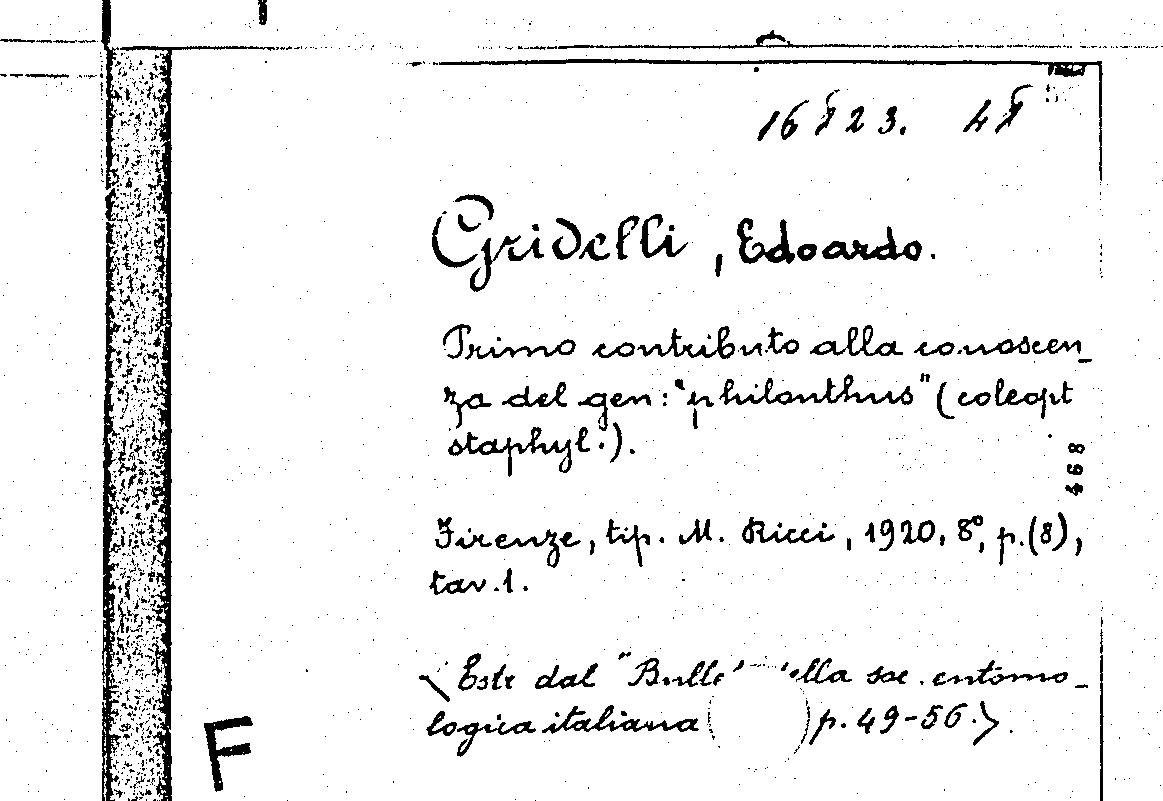 Gridelli, Edoardo.
Primo contributo alla conoscen_
za del gen: "philonthus" (coleopt
staphyl.).
468
Firenze, tip. M. Ricci, 1920, 8°, p.(8),
tav.1.
Estr dal "Bull della soc. entomo_
logica italiana p. 49-56.>
F